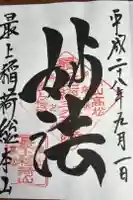 平成二十八年九月一日
妙法
最上稲荷総本山